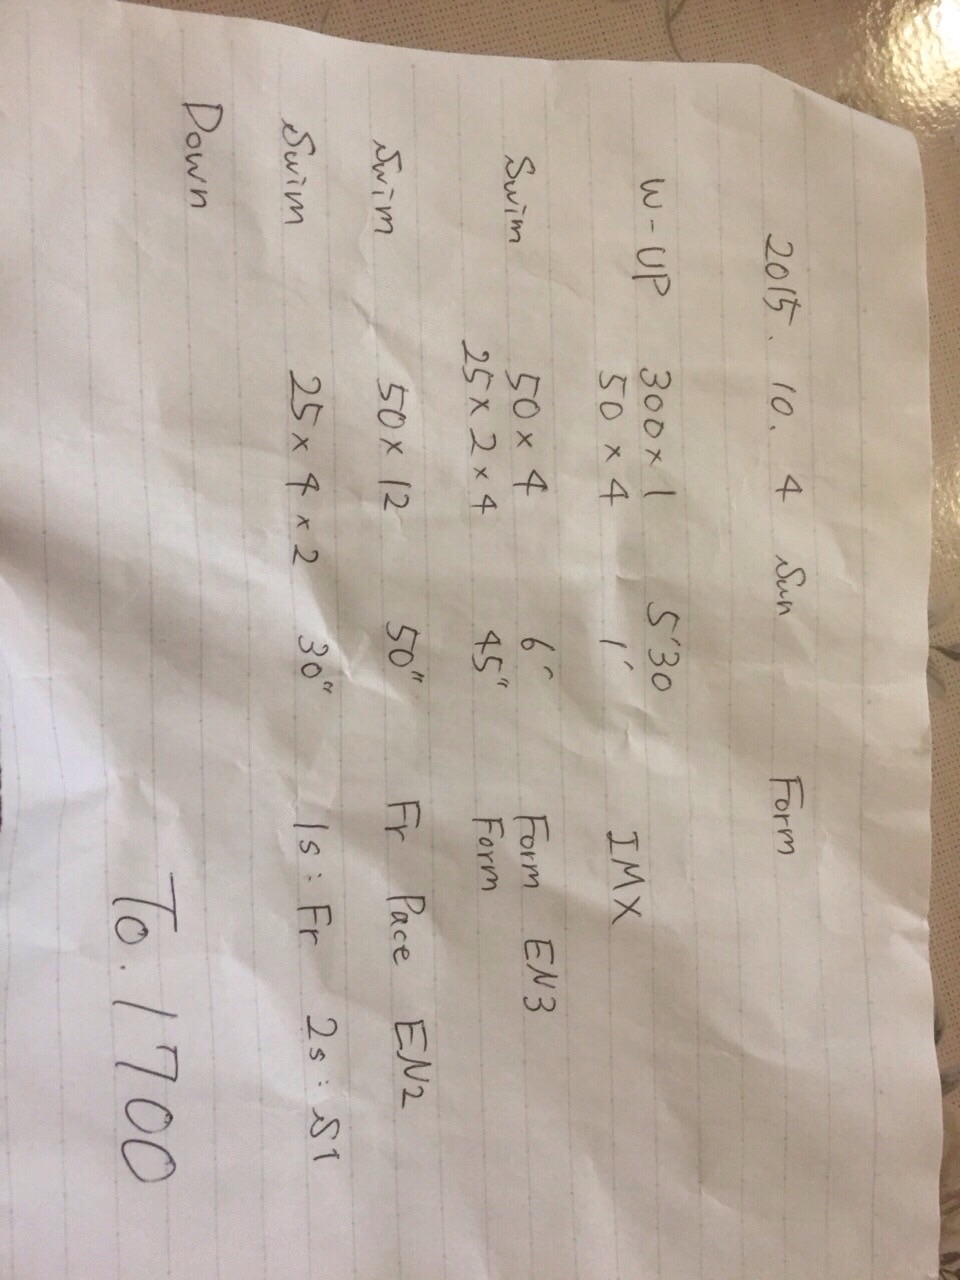 2015. 10. 4 Sun Form
W-UP 300×1 5'30
50×4 1' IMX
Swim 50×4 6' Form EN3
25×2×4 45" Form
Swim 50×12 50" Fr Pace EN2
Swim 25×4×2 30" 1s: Fr 2s: S1
Down
To. 1700